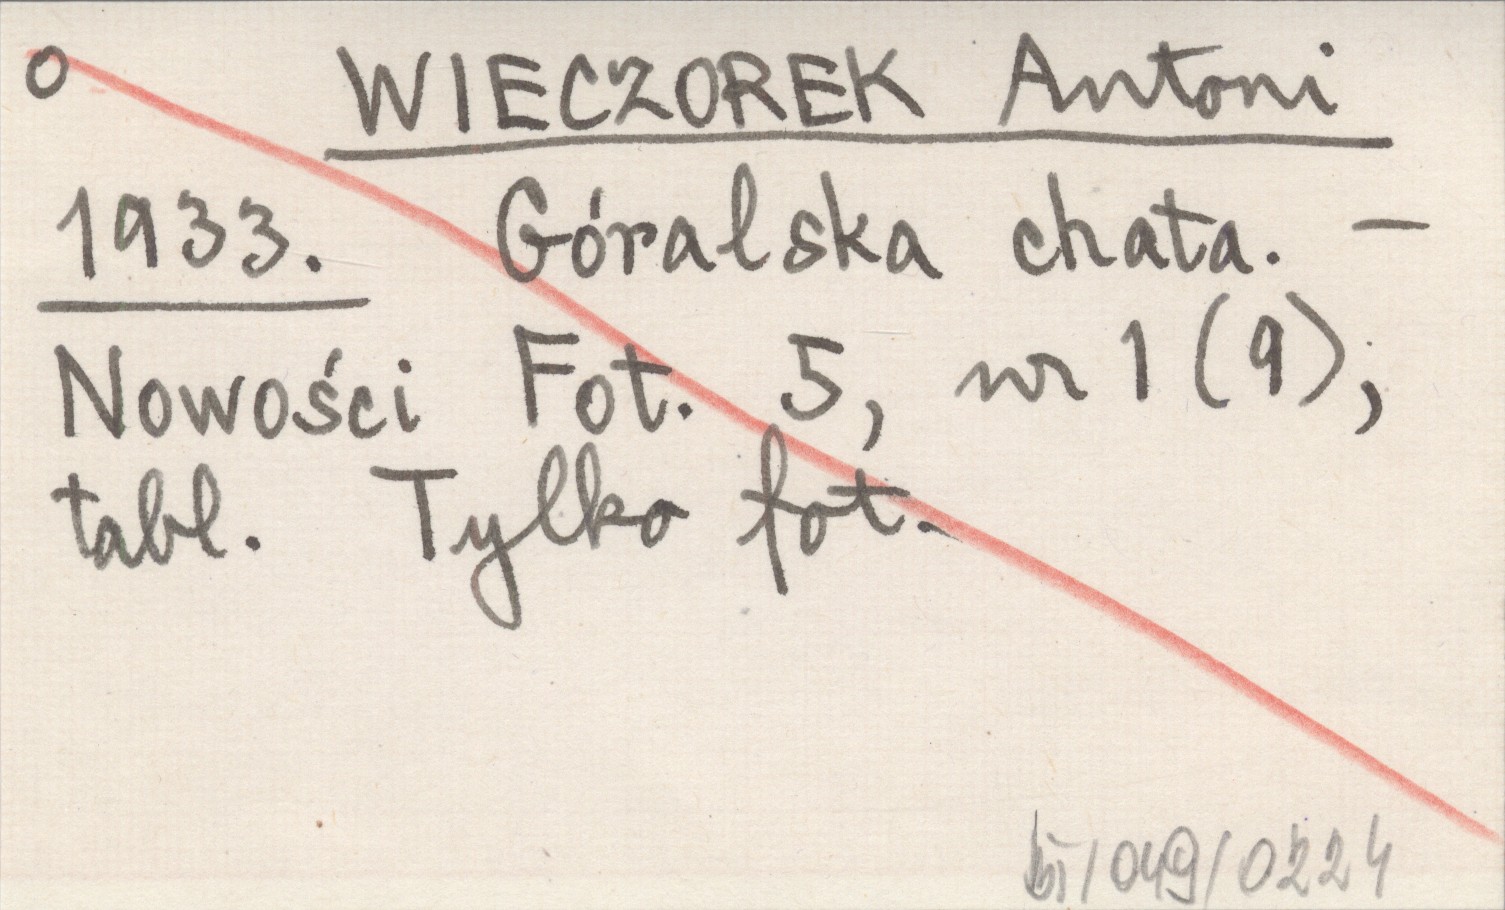 o WIECZOREK Antoni
1933. Góralska chata. –
Nowości Fot. 5, nr 1 (9);
tabl. Tylko fot.
/049/0224